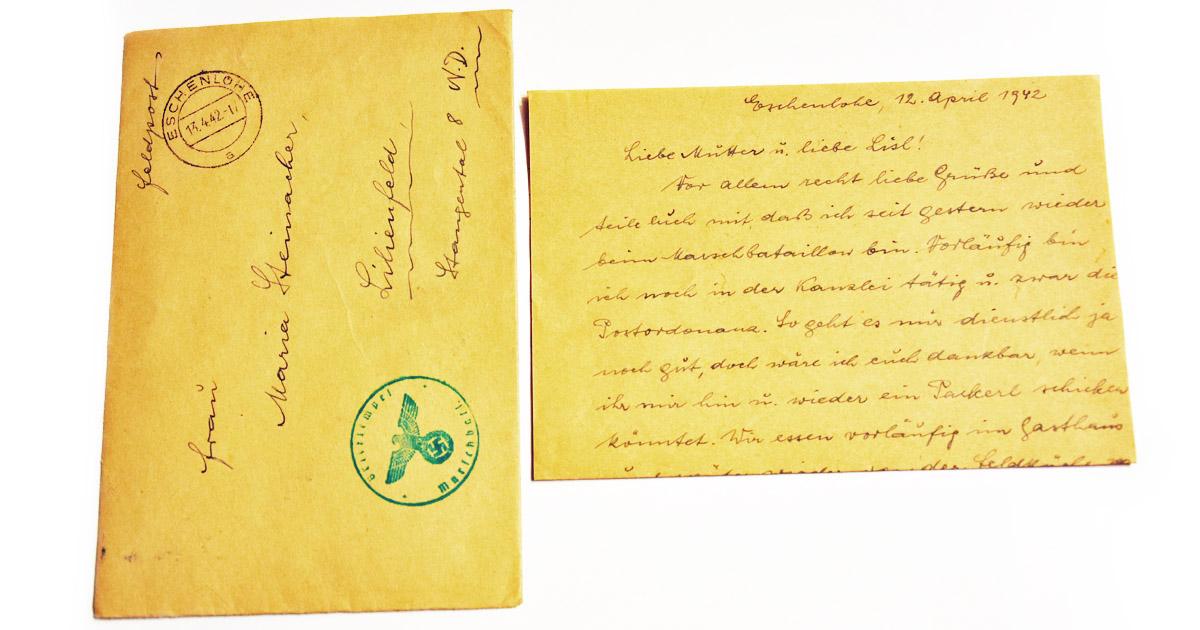 Feldpost
ESCHENLOHE
13.4.42.-17
a
Frau
Maria Steinacher,
Lilienfeld,
Stangental 8 N.D.
Briefstempel
Marschbatl.
Eschenlohe, 12. April 1942
Liebe Mutter u. liebe Lisl!
Vor allem recht liebe Grüße und
teile Euch mit, daß ich seit gestern wieder
beim Marschbataillon bin. Vorläufig bin
ich noch in der Kanzlei tätig u. zwar die
Postordonanz. So geht es mir dienstlich ja
noch gut, doch wäre ich euch dankbar, wenn
ihr mir hin u. wieder ein Packerl schicken
könntet. Wir essen vorläufig im Gasthaus
wieder von der Feldküche